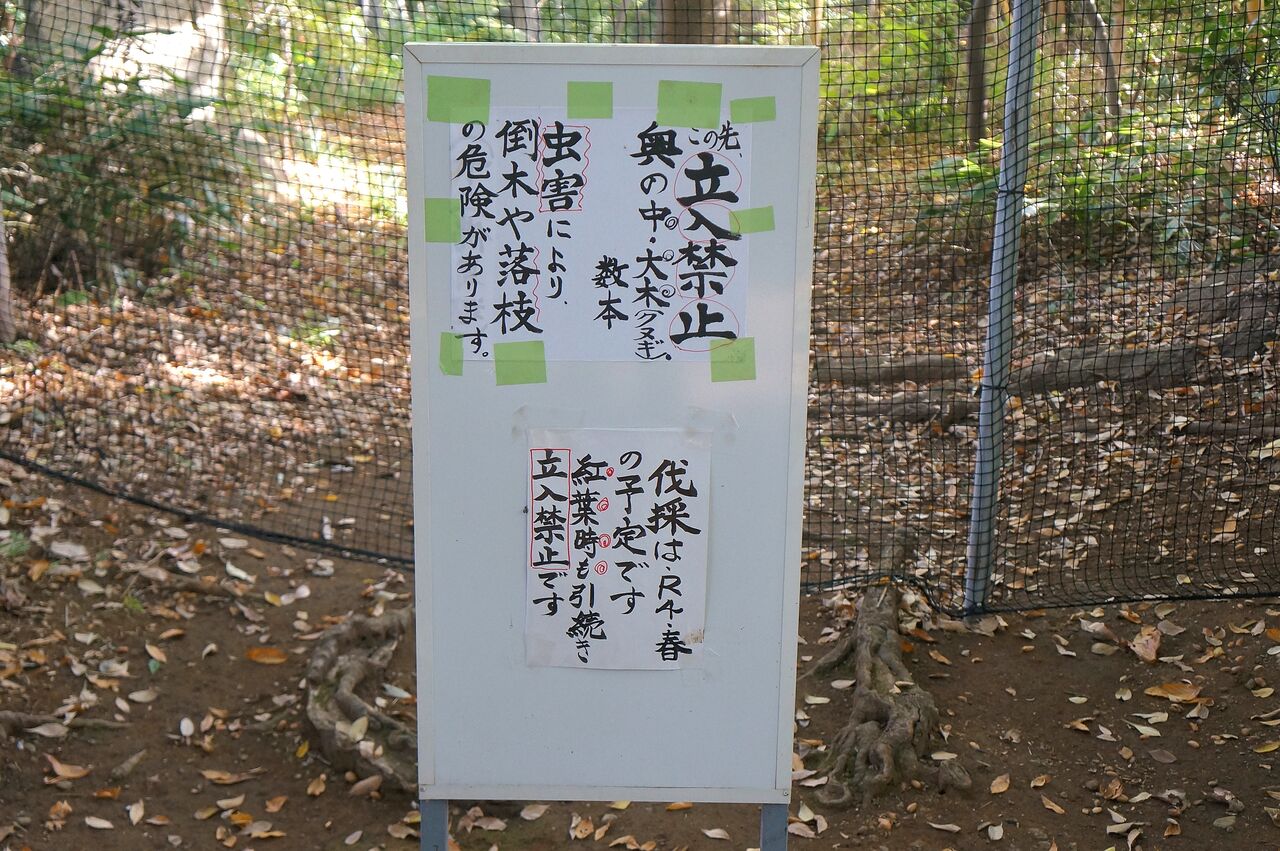 この先、立入禁止
奥の中・大木(クヌギ)、
数本
虫害により、
倒木や落枝
の危険があります。
伐採は・R4・春
の予定です
紅葉時も引続き
立入禁止です